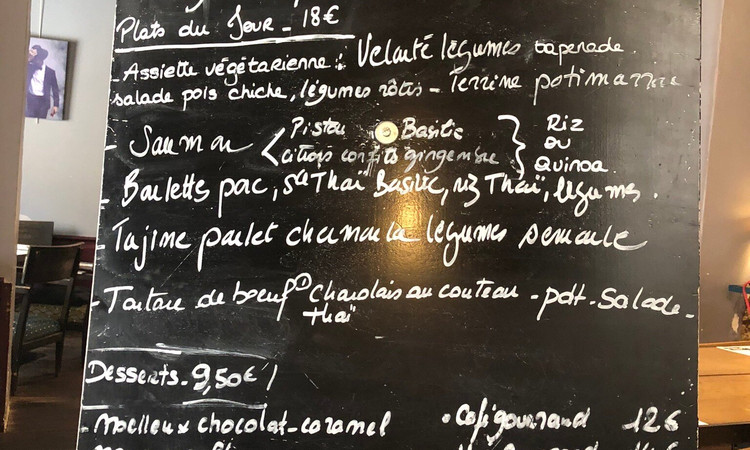 Plats du Jour - 18€
- Assiette végétarienne : Velouté légumes tapenade.
salade pois chiche, légumes rôtis - Terrine potimarron
- Saumon < Pistou Basilic } Riz
citrons confits gingembre ou
Quinoa.
- Boulettes porc, sce Thaï Basilic, riz Thaï, légumes.
- Tajine poulet chamoula légumes semoule
- Tartare de boeuf Charolais au couteau - pdt - Salade -
Thaï
Desserts - 9,50€
- Moelleux chocolat-caramel • Café gourmand 12€